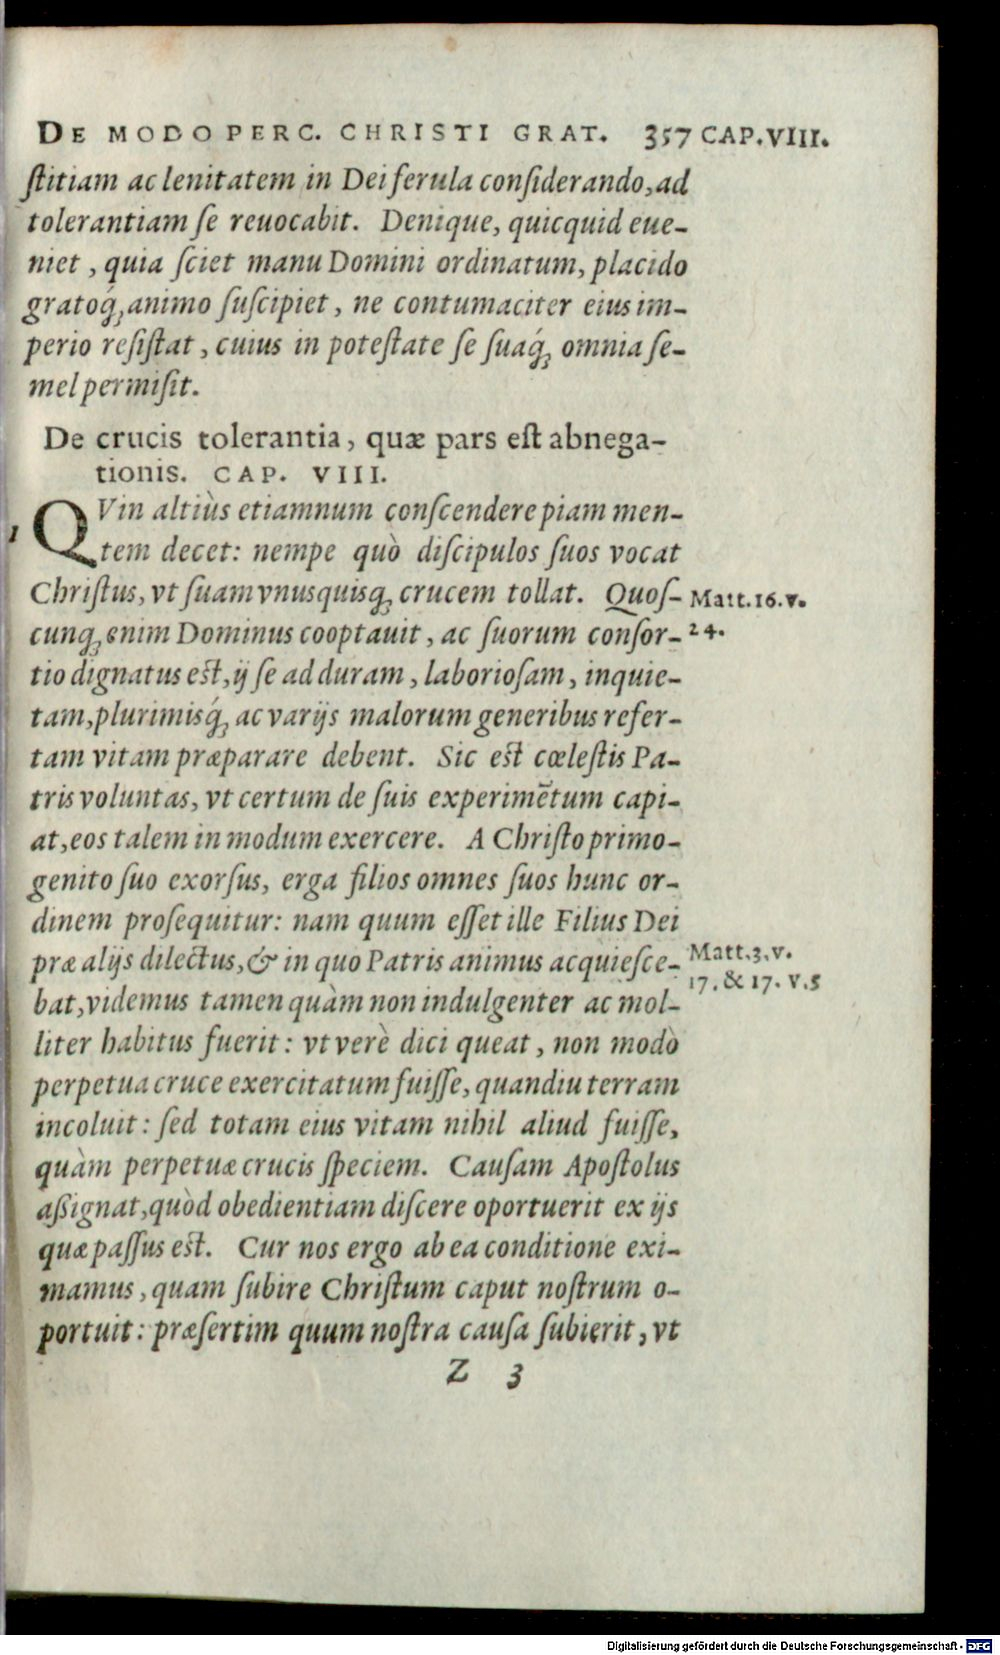 DE MODO PERC. CHRISTI GRAT. 357 CAP.VIII.
ſtitiam ac lenitatem in Dei ferula conſiderando, ad
tolerantiam ſe reuocabit. Denique, quicquid eue-
niet, quia ſciet manu Domini ordinatum, placido
gratoq́; animo ſuſcipiet, ne contumaciter eius im-
perio reſiſtat, cuius in poteſtate ſe ſuaq́; omnia ſe-
mel permiſit.
De crucis tolerantia, quæ pars eſt abnega-
tionis. CAP. VIII.
1 QVin altiùs etiamnum conſcendere piam men-
tem decet: nempe quò diſcipulos ſuos vocat
Chriſtus, vt ſuam vnusquisq; crucem tollat. Quoſ- Matt.16.v.
cunq; enim Dominus cooptauit, ac ſuorum conſor- 24.
tio dignatus eſt, ij ſe ad duram, laborioſam, inquie-
tam, plurimisq́; ac varijs malorum generibus refer-
tam vitam præparare debent. Sic eſt cœleſtis Pa-
tris voluntas, vt certum de ſuis experimẽtum capi-
at, eos talem in modum exercere. A Chriſto primo-
genito ſuo exorſus, erga filios omnes ſuos hunc or-
dinem proſequitur: nam quum eſſet ille Filius Dei
præ alijs dilectus, & in quo Patris animus acquieſce- Matt.3.v.
bat, videmus tamen quàm non indulgenter ac mol- 17. & 17. v.5
liter habitus fuerit: vt verè dici queat, non modò
perpetua cruce exercitatum fuiſſe, quandiu terram
incoluit: ſed totam eius vitam nihil aliud fuiſſe,
quàm perpetuæ crucis ſpeciem. Cauſam Apoſtolus
aßignat, quòd obedientiam diſcere oportuerit ex ijs
quæ paſſus eſt. Cur nos ergo ab ea conditione exi-
mamus, quam ſubire Chriſtum caput noſtrum o-
portuit: præſertim quum noſtra cauſa ſubierit, vt
Z 3
Digitalisierung gefördert durch die Deutsche Forschungsgemeinschaft - DFG